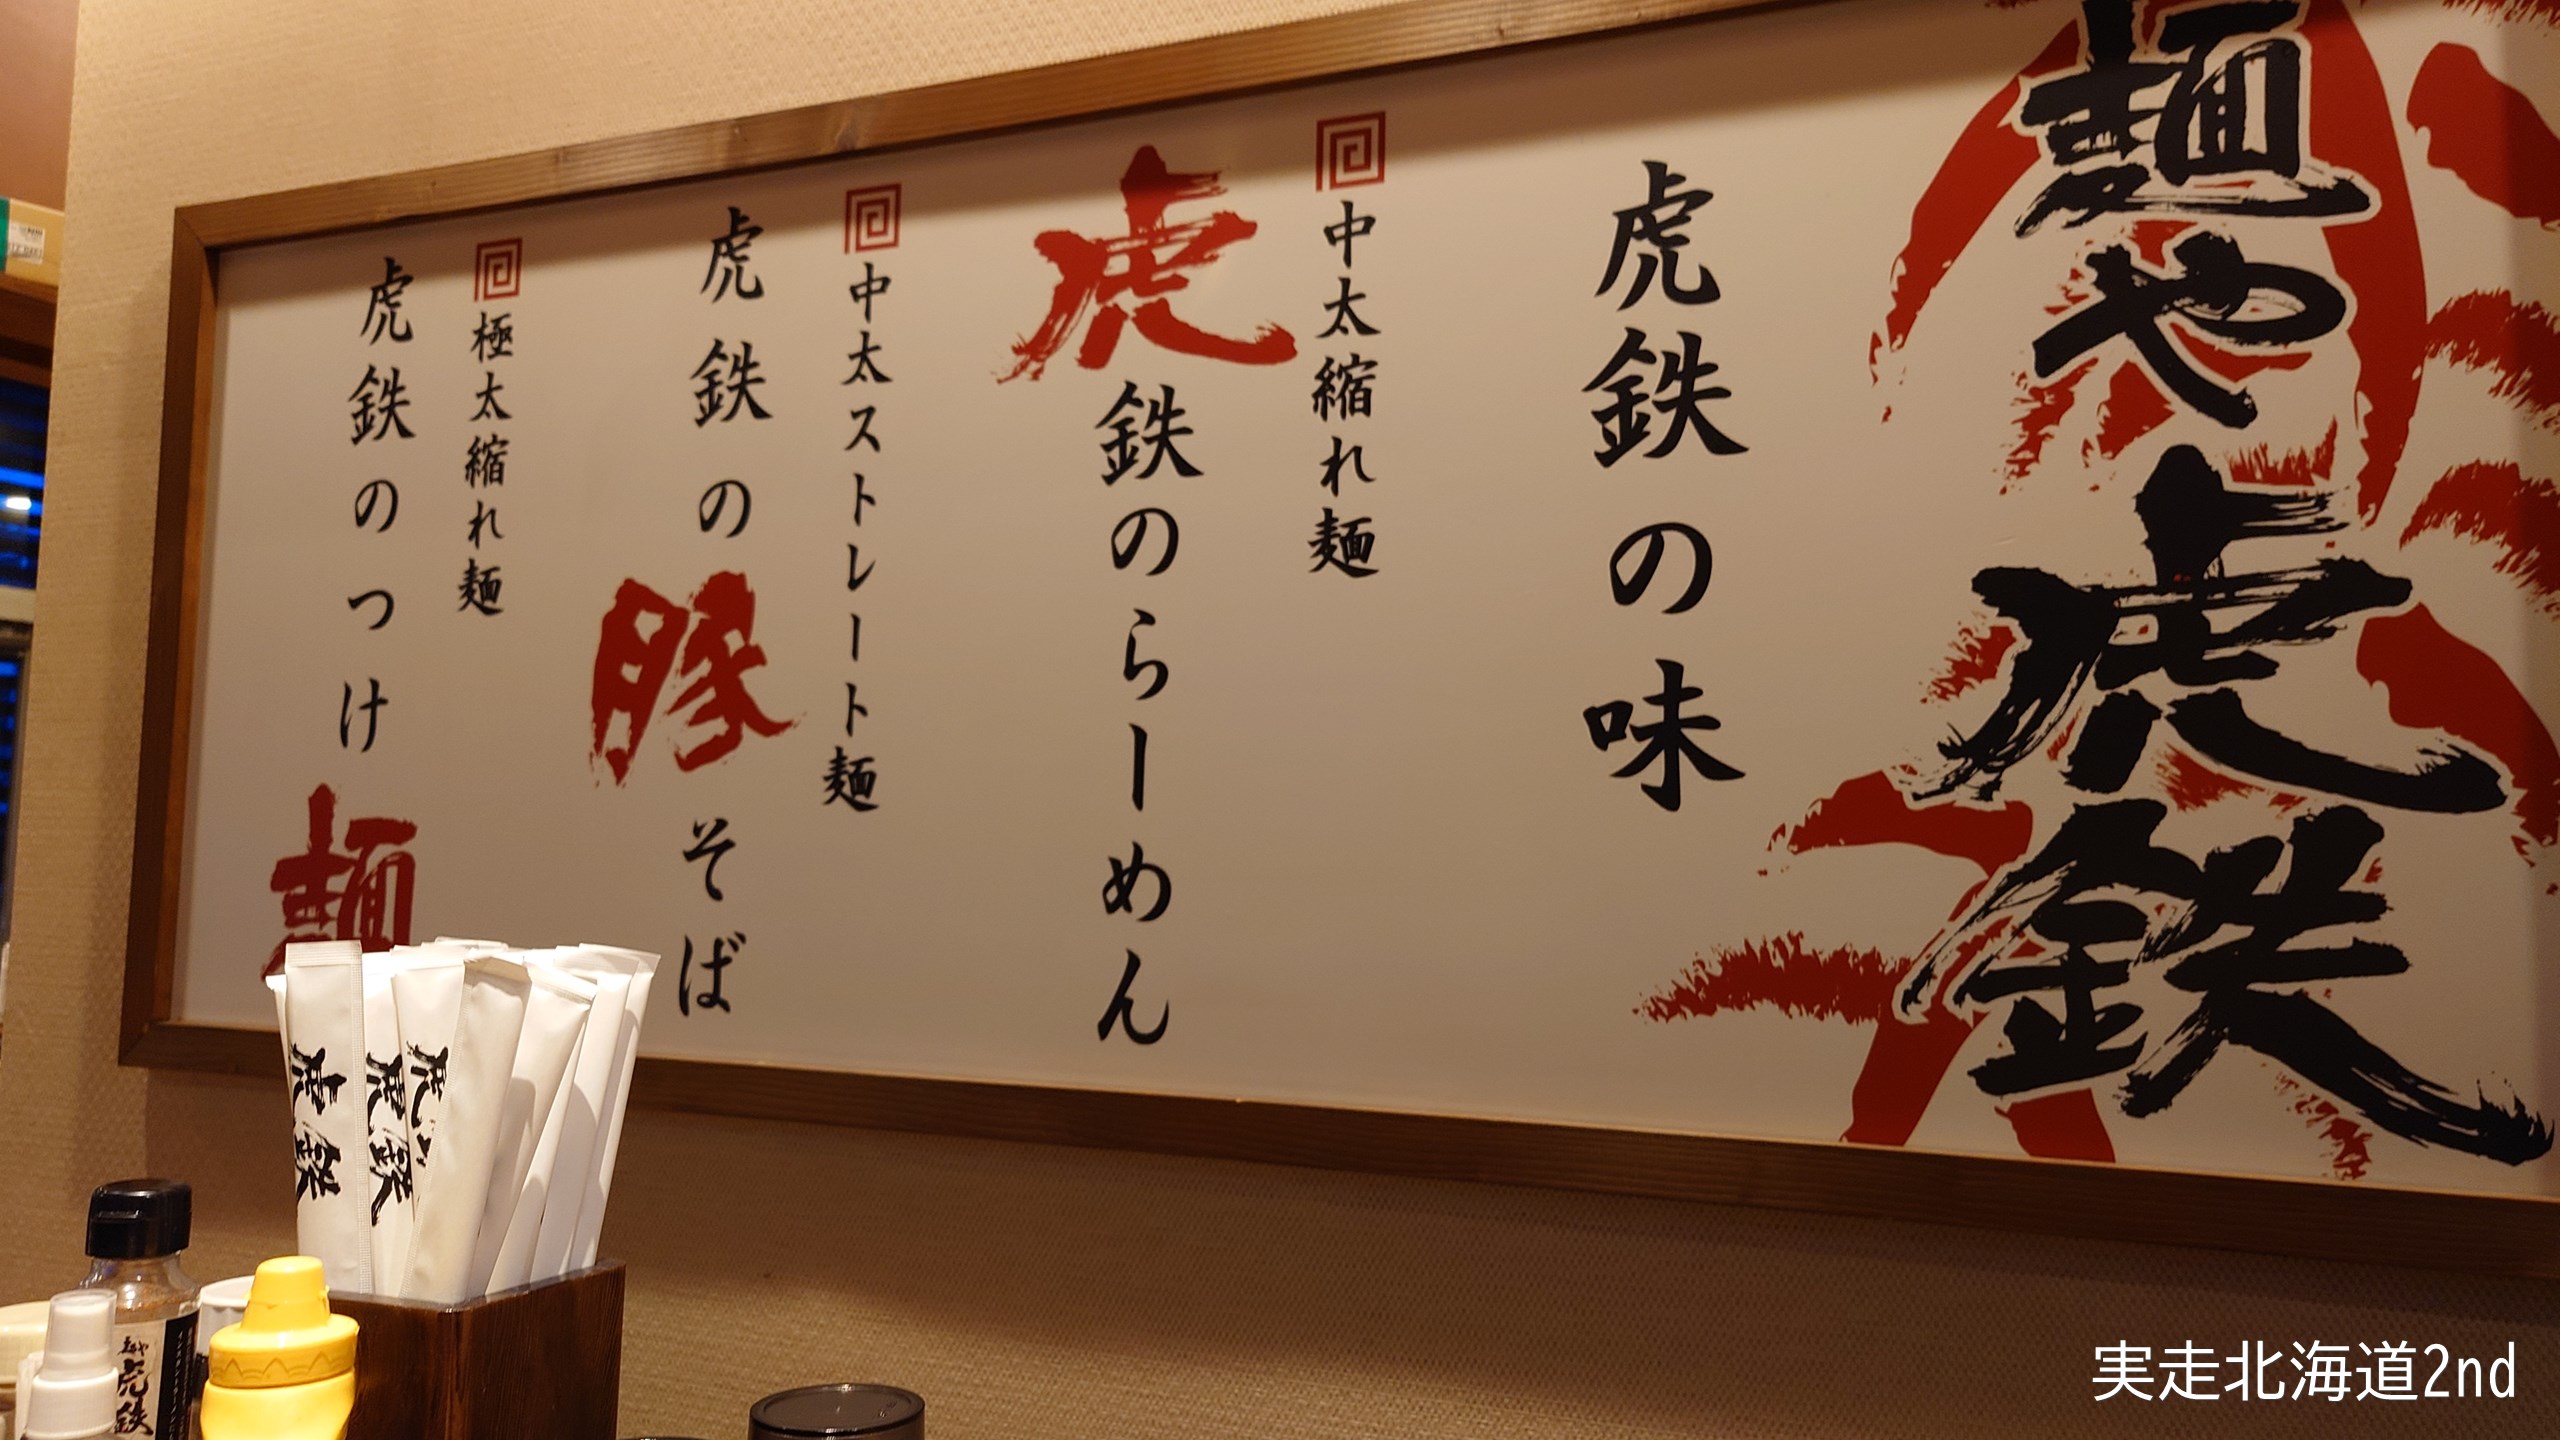 麺や虎鉄
虎鉄の味
中太縮れ麺
虎鉄のらーめん
中太ストレート麺
虎鉄の豚そば
極太縮れ麺
虎鉄のつけ麺
虎鉄
虎鉄
虎
麺や
虎鉄
実走北海道2nd